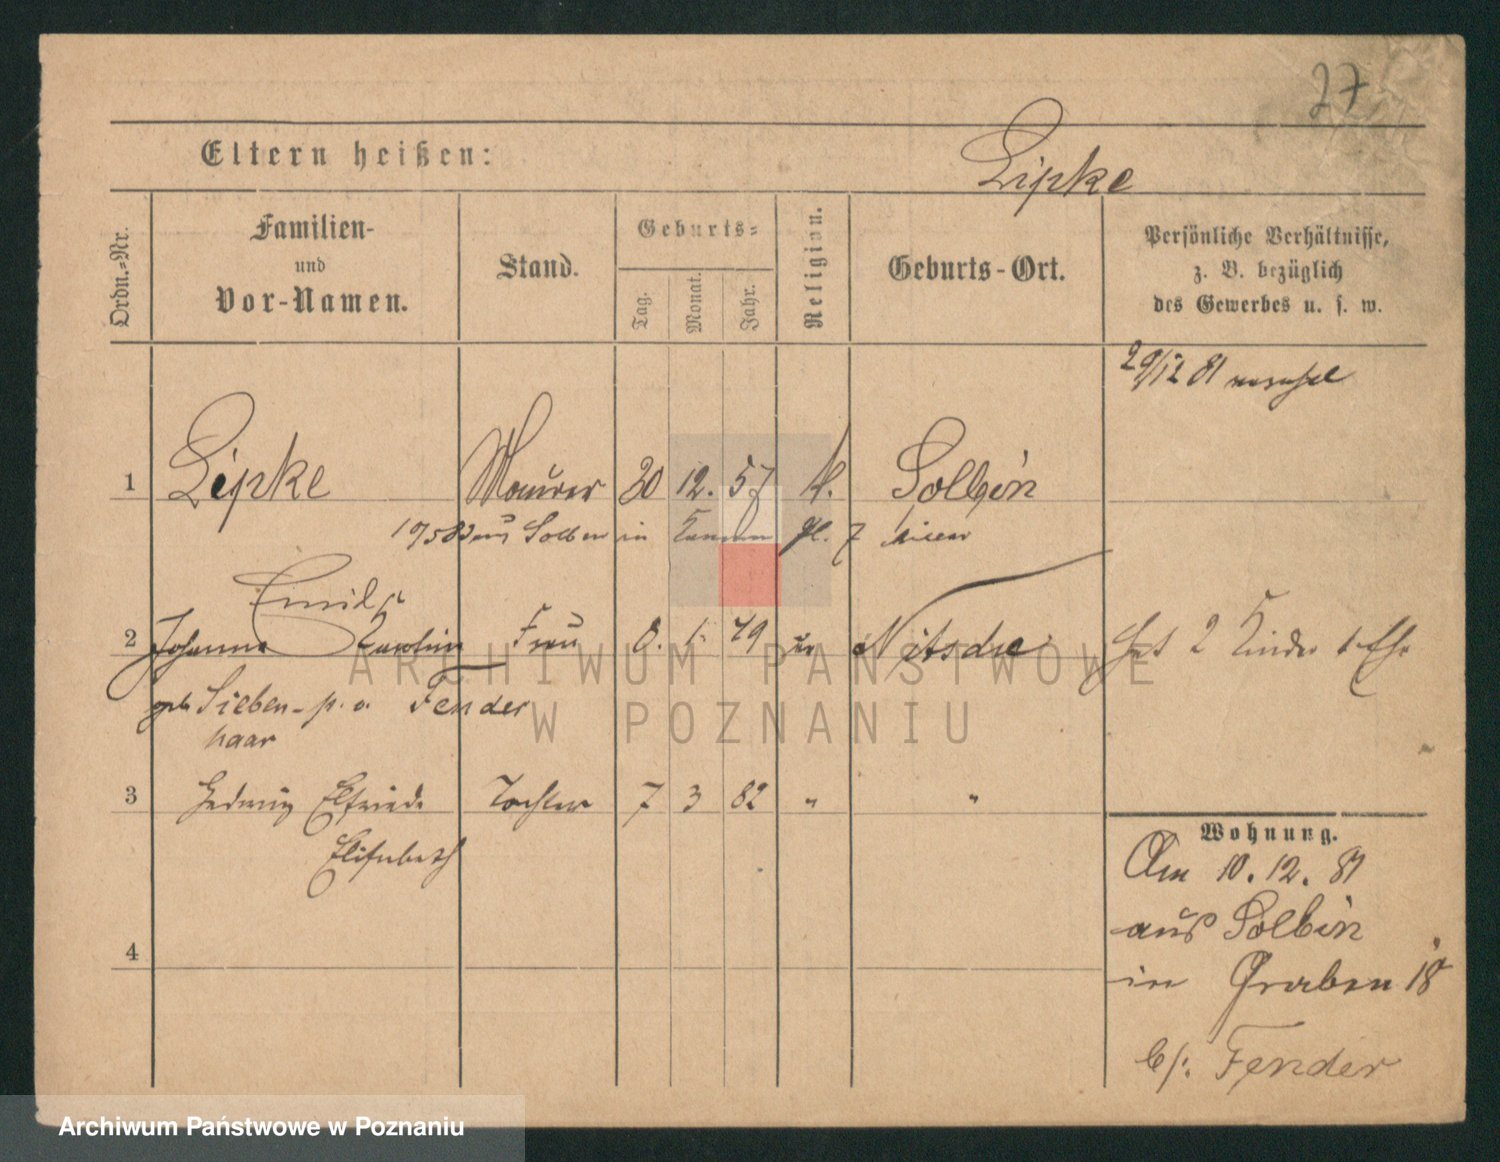 27
Eltern heißen:
Lipke
Ordn.-Nr.
Familien-
und
Vor-Namen.
Stand.
Geburts-
Tag.
Monat.
Jahr.
Religion.
Geburts-Ort.
Persönliche Verhältnisse,
z. B. bezüglich
des Gewerbes u. s. w.
29/12 81
1 Lipke Maurer 20 12. 57 k. Solbin
aus in
Emil
2 Johanna Karolin Frau 8. 1. 79 Nitsche Hat 2 Kinder 1. Ehe
geb Sieben- p. o. Fender
haar
3 Hedwig Elfriede Tochter 7 3 82 " "
Elisabeth
4
Wohnung.
Am 10. 12. 81
aus Solbin
in Graben 18
b/: Fender
ARCHIWUM PAŃSTWOWE
W POZNANIU
Archiwum Państwowe w Poznaniu